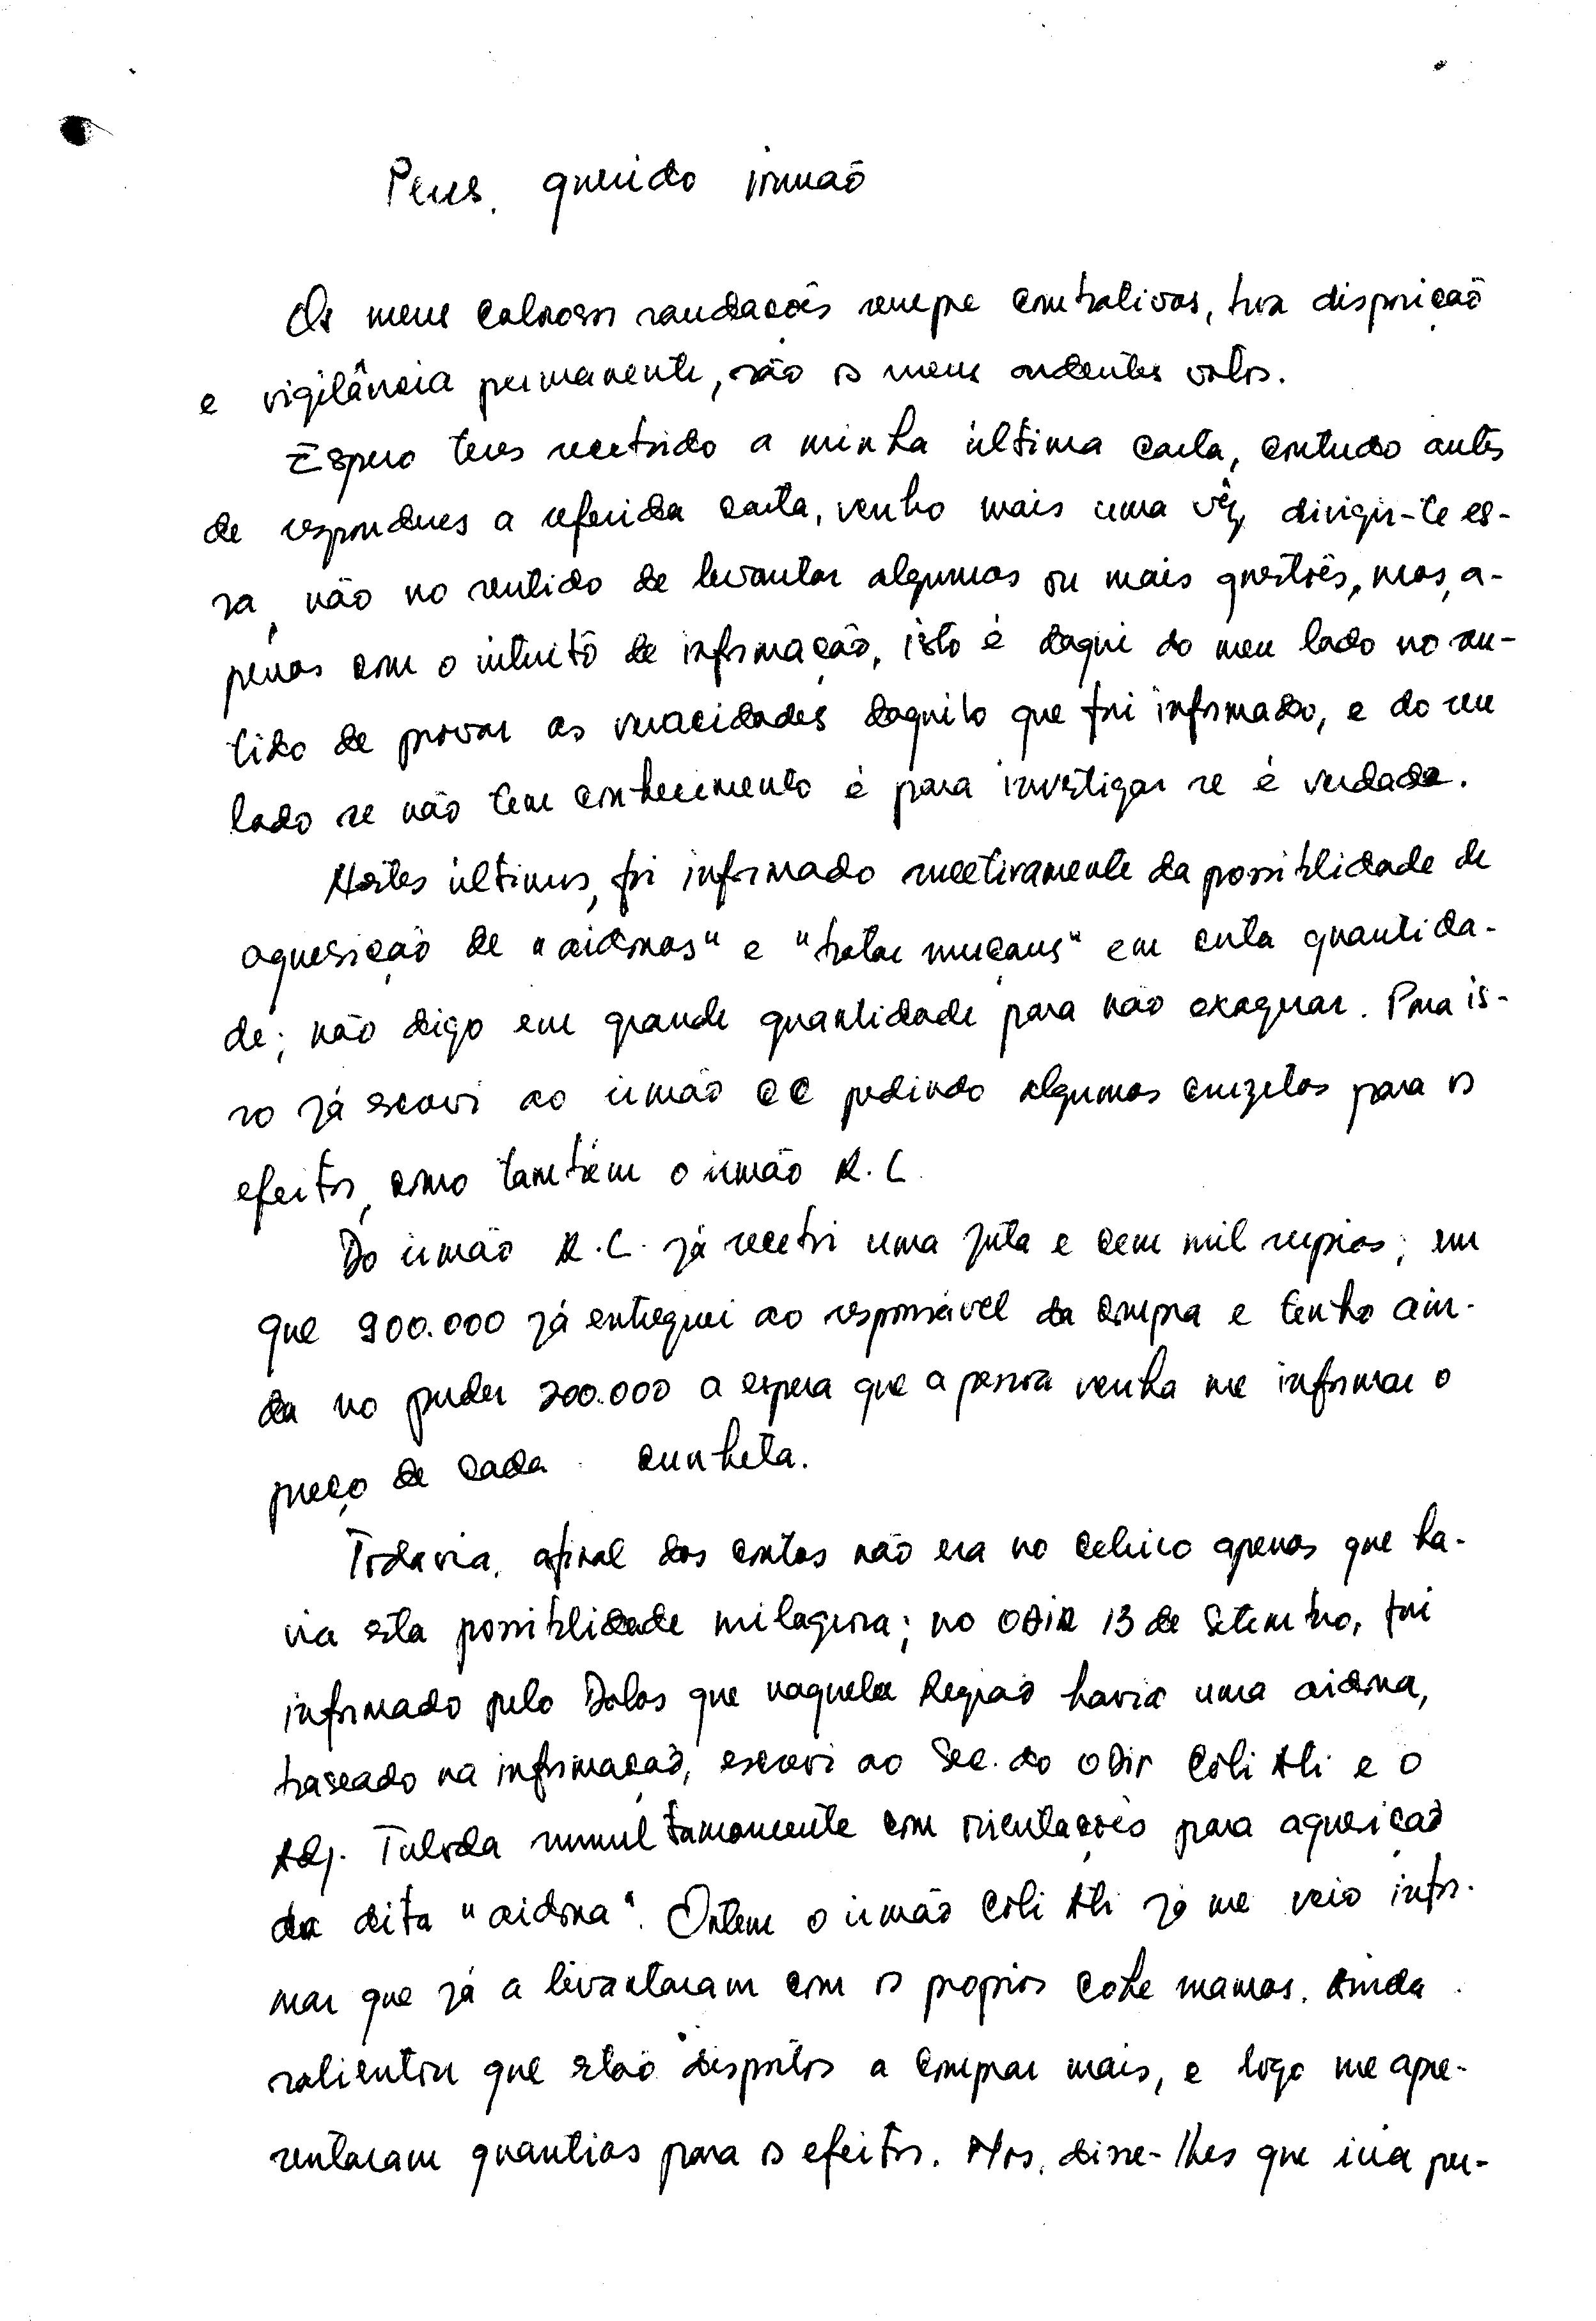 Peus. querido irmão
Os meus calorosos saudações sempre combativas, boa disposição
e vigilância permanente, são os meus ardentes votos.
Espero teres recebido a minha última carta, contudo antes
de responderes a referida carta, venho mais uma vêz, dirigir-te es-
sa, não no sentido de levantar algumas ou mais questões, mas, a-
penas com o intuitô de informação, isto é daqui do meu lado no sen-
tido de provar as veracidades daquilo que foi informado, e do seu
lado se não tem conhecimento é para investigar se é verdade.
Nestes últimos, foi informado sucetivamente da possiblidade de
aquesição de "aidonas" e "batar muçans" em certa quantida-
de; não digo em grande quantidade para não exagerar. Para is-
so já escrevi ao irmão CC pedindo algumas cruzetas para os
efeitos, como também o irmão R.C.
Do irmão R.C. já recebi uma juta e cem mil rupias; em
que 900.000 já entreguei ao responsável da compra e tenho ain-
da no puder 200.000 a espera que a pessoa venha me informar o
preço de cada cunheta.
Todavia, afinal das contas não era no celcico apenas que ha-
via esta possiblidade milagrosa; no ODIR 13 de Setembro, fui
informado pelo Dolas que naquela Região havia uma aidona,
baseado na informação, escrevi ao Sec. do ODIR Coli Ali e o
Adj. Tuloda simultamamente com orientações para aquesição
da dita "aidona". Ontem o irmão Coli Ali já me veio infor-
mar que já a levantaram com os propios cohe mamas. Ainda
salientou que estão dispostos a comprar mais, e logo me apre-
sentaram quantias para os efeitos. Mas, disse-lhes que iria per-